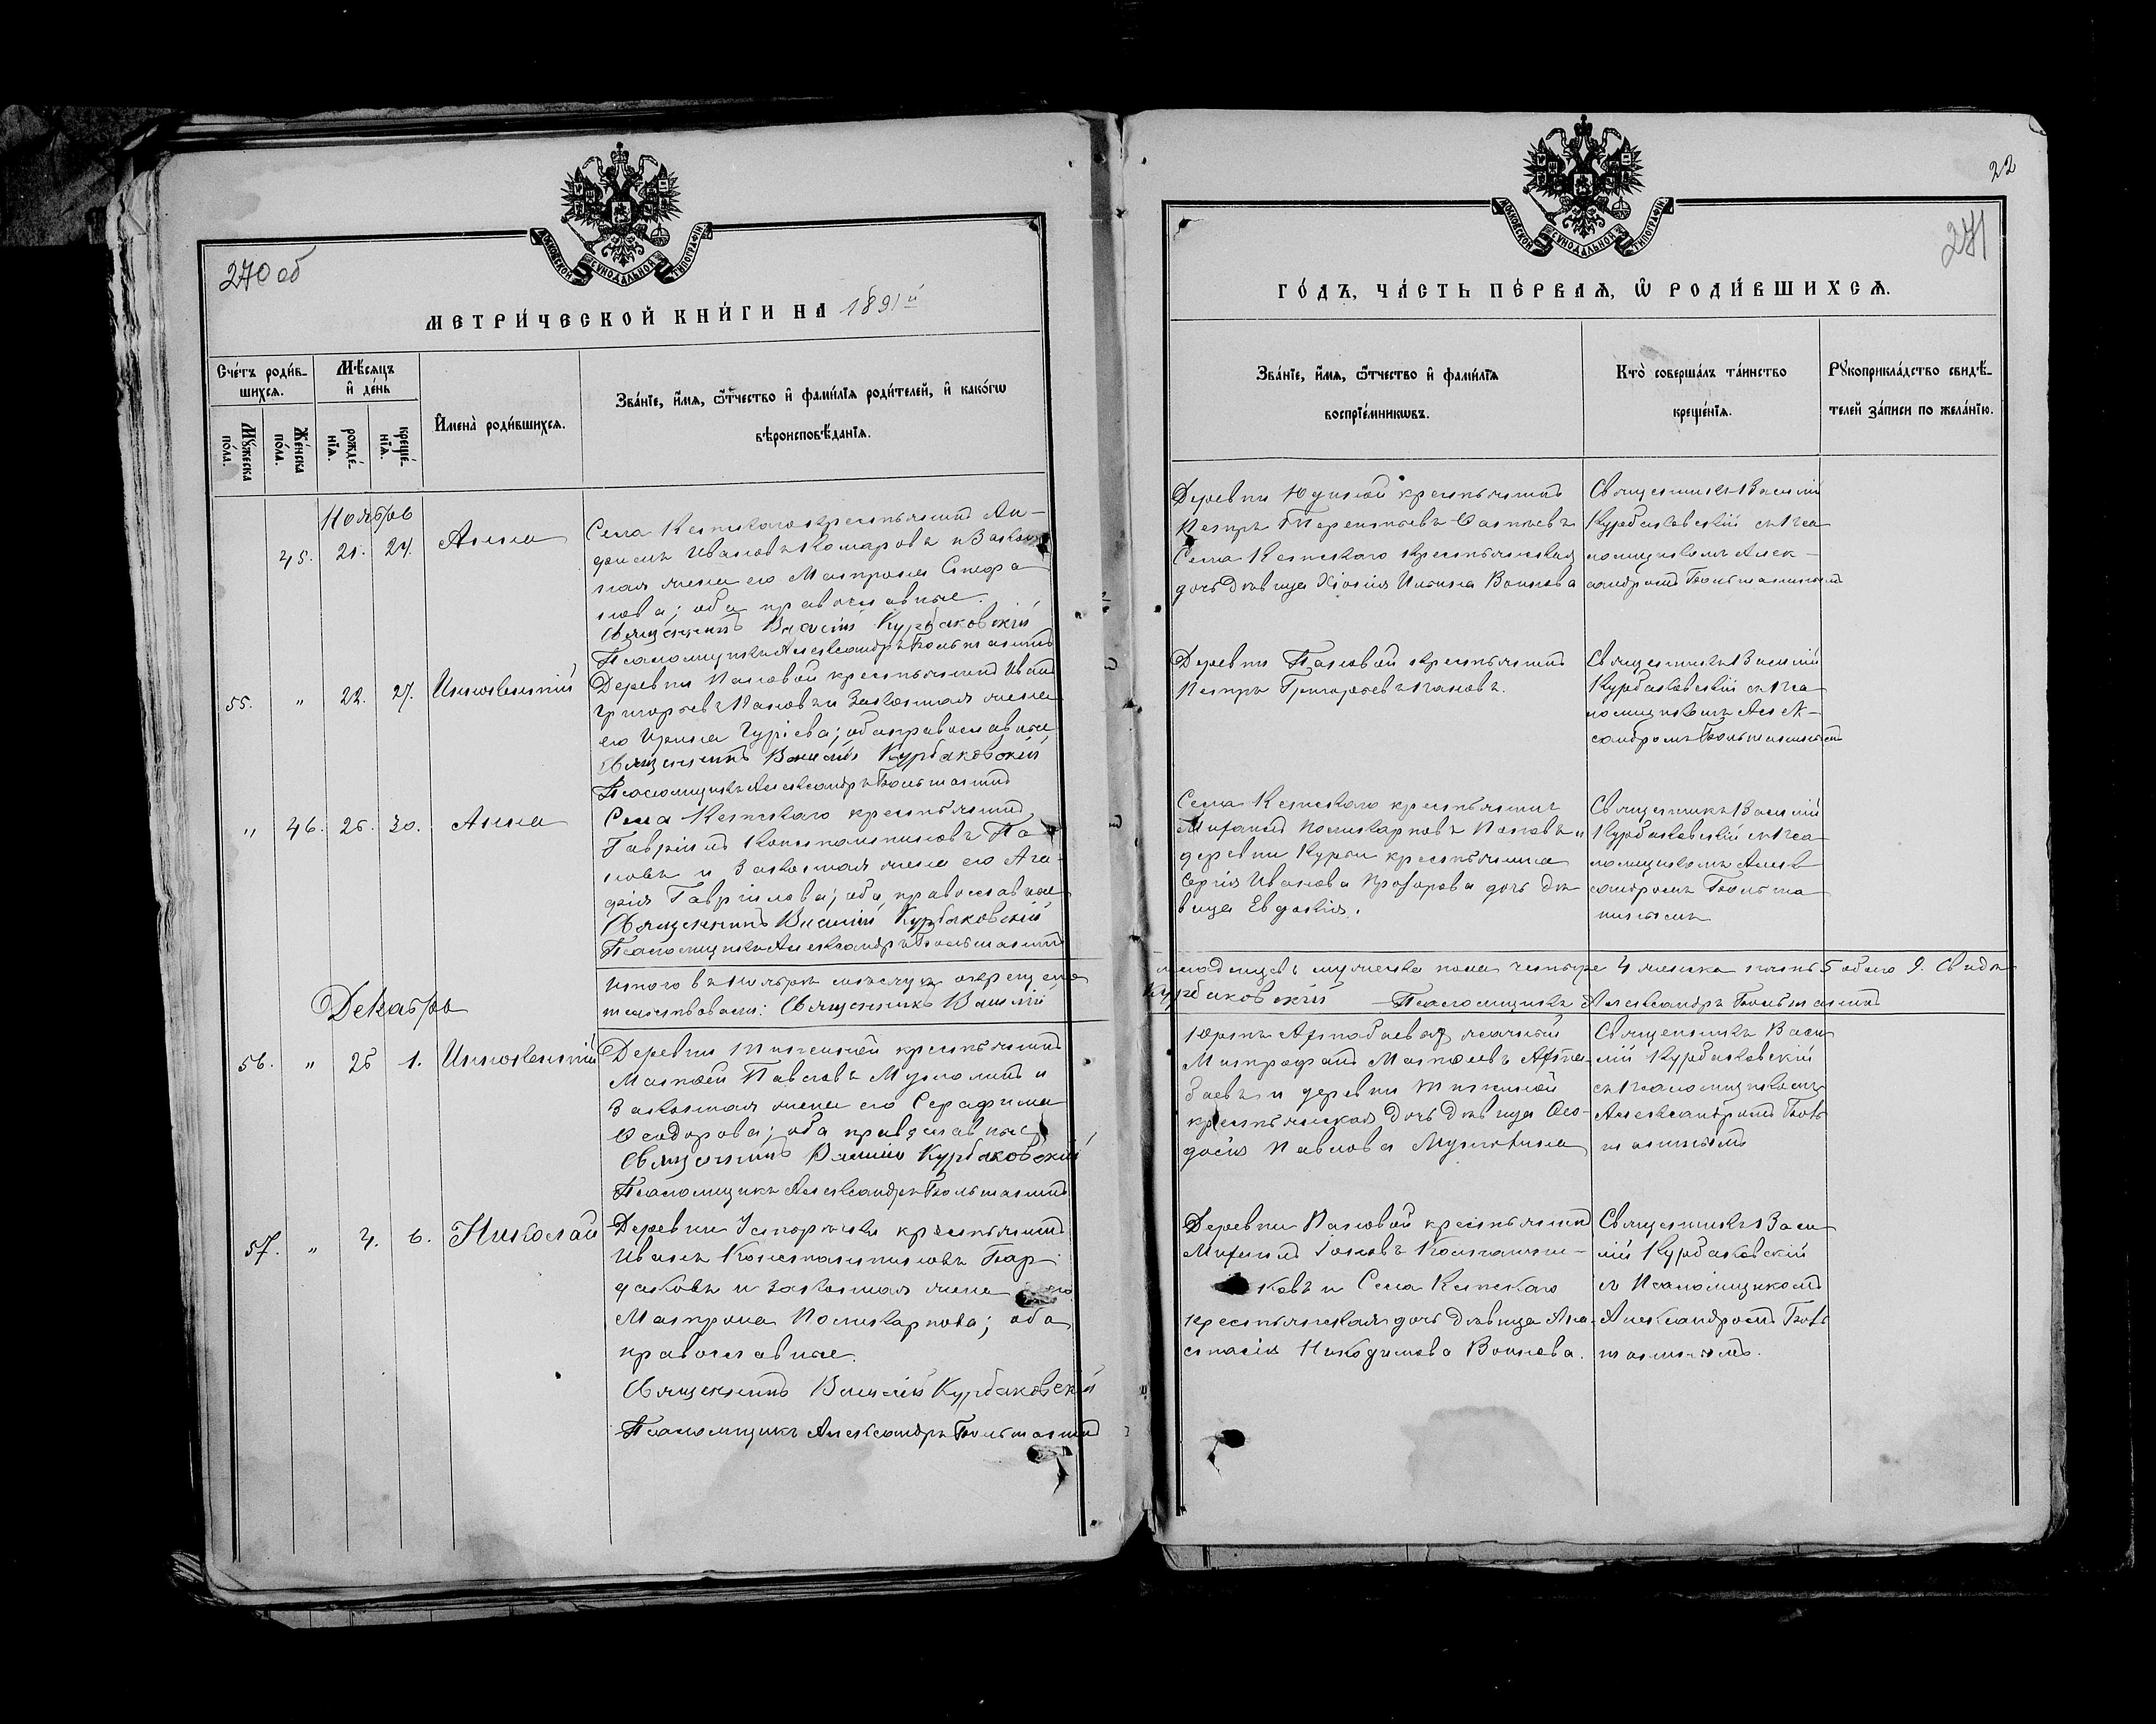 270 об
МОСКОВСКОЙ СѴНОДАЛЬНОЙ ТИПОГРАФІИ
МЕТРИ́ЧЕСКОЙ КНИ́ГИ НА 1891й
Сче́тъ роди́в-
шихся.
Мѣ́сяцъ
и҆ де́нь
Му́жеска
по́ла.
Же́нска
по́ла.
рожде́-
нїя.
креще́-
нїя.
И҆мена̀ роди́вшихся.
Зва́нїе, и҆́мя, ѻ҆́тчество и҆ фами́лїя роди́телей, и҆ како́гѡ
вѣроисповѣ́данїя.
Ноябрь
45. 21. 24. Анна
Села Кетскаго крестьянинъ Ан-
 Ивановъ Комаровъ и Закон
ная жена его Матрона Стефа
нова; оба православные.
Священникъ Василій Курбаковскій
Псаломщикъ Александръ Большанинъ
55. " 22. 27. Иннокентій
Деревни Пановой крестьянинъ Иванъ
Григорьевъ Пановъ и Законная жена
его Ирина Гуріева; оба православные
Священникъ Василій Курбаковскій
Псаломщикъ Александръ Большанинъ
" 46. 26. 30. Анна
Села Кетскаго крестьянинъ
Гавріилъ Константиновъ Па
новъ и Законная жена его Ага-
фія Гавріилова; оба православные
Священникъ Василій Курбаковскій
Псаломщикъ Александръ Большанинъ
Итого въ Ноябрѣ мѣсяцѣ окрещено
тельствовали: Священникъ Василій
Декабрь
56. " 26 1. Иннокентій
Деревни крестьянинъ
Матфей Павловъ и
Законная жена его Серафима
Ѳеодорова; оба православные
Священникъ Василій Курбаковскій
Псаломщикъ Александръ Большанинъ
57. " 4. 6. Николай
Деревни крестьянинъ
Иванъ Константиновъ Бар
даковъ и законная жена его
Матрона Поликарпова; оба
православные.
Священникъ Василій Курбаковскій
Псаломщикъ Александръ Большанинъ
22
271
МОСКОВСКОЙ СѴНОДАЛЬНОЙ ТИПОГРАФІИ
ГО́ДЪ, ЧА́СТЬ ПЕ́РВАЯ, Ѡ҆ РОДИ́ВШИХСЯ.
Зва́нїе, и҆́мя, ѻ҆́тчество и҆ фами́лїя
воспрїе́мникѡвъ.
Кто̀ соверша́лъ та́инство
креще́нїя.
Рꙋкоприкла́дство свидѣ́-
телей за́писи по жела́нїю.
Деревни Юдиной крестьянинъ
Петръ Терентьевъ
Села Кетскаго крестьянская
дочь дѣвица Хіонія Ильина Воинова
Священникъ Василій
Курбаковскій съ Пса
ломщикомъ Алек-
сандромъ Большанинымъ
Деревни Пановой крестьянинъ
Петръ Григорьевъ Пановъ.
Священникъ Василій
Курбаковскій съ Пса
ломщикомъ Алек-
сандромъ Большанинымъ
Села Кетскаго крестьянинъ
Михаилъ Поликарповъ Пановъ и
деревни Курьи крестьянина
Сергія Иванова Прохорова дочь дѣ
вица Евдокія.
Священникъ Василій
Курбаковскій съ Пса-
ломщикомъ Алек
сандромъ Больша
нинымъ
младенцевъ мужеска пола четыре 4 женска пять 5 обоего 9. Свидѣ-
Курбаковскій Псаломщикъ Александръ Большанинъ
Юртъ ясачный
Митрофанъ Матѳеевъ
 и деревни
крестьянская дочь дѣвица Ѳео-
досія Павлова
Священникъ Васи
лій Курбаковскій
съ Псаломщикомъ
Александромъ Боль
шанинымъ
Деревни Пановой крестьянинъ
Михаилъ Іоновъ
ковъ и Села Кетскаго
крестьянская дочь дѣвица Ана-
стасія Никодимова Воинова.
Священникъ Васи
лій Курбаковскій
съ Псаломщикомъ
Александромъ Боль
шанинымъ.